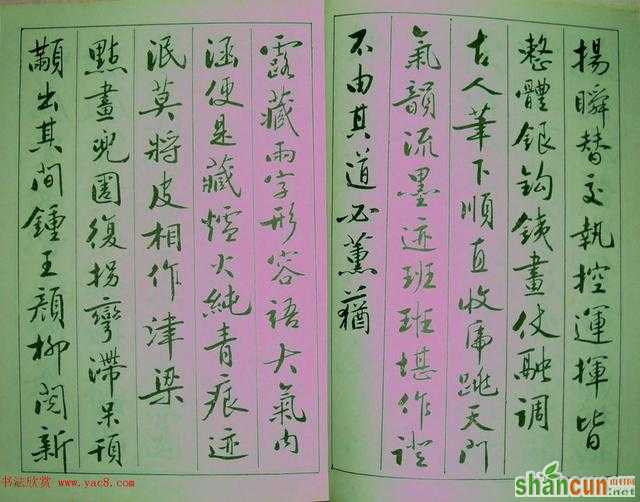 揚瞬替交執控運揮皆
整體銀鉤鐵畫仗融調
古人筆下順直收虎跳天門
氣韻流墨迹班班堪作證
不由其道必薰蕕
露藏兩字形容語大氣内
涵便是藏爐火純青痕迹
泯莫將皮相作津梁
點畫兜圈復拐彎滯呆頑
顢出其間鍾王顏柳閱新
书法欣赏 www.yac8.com
shancun
.net